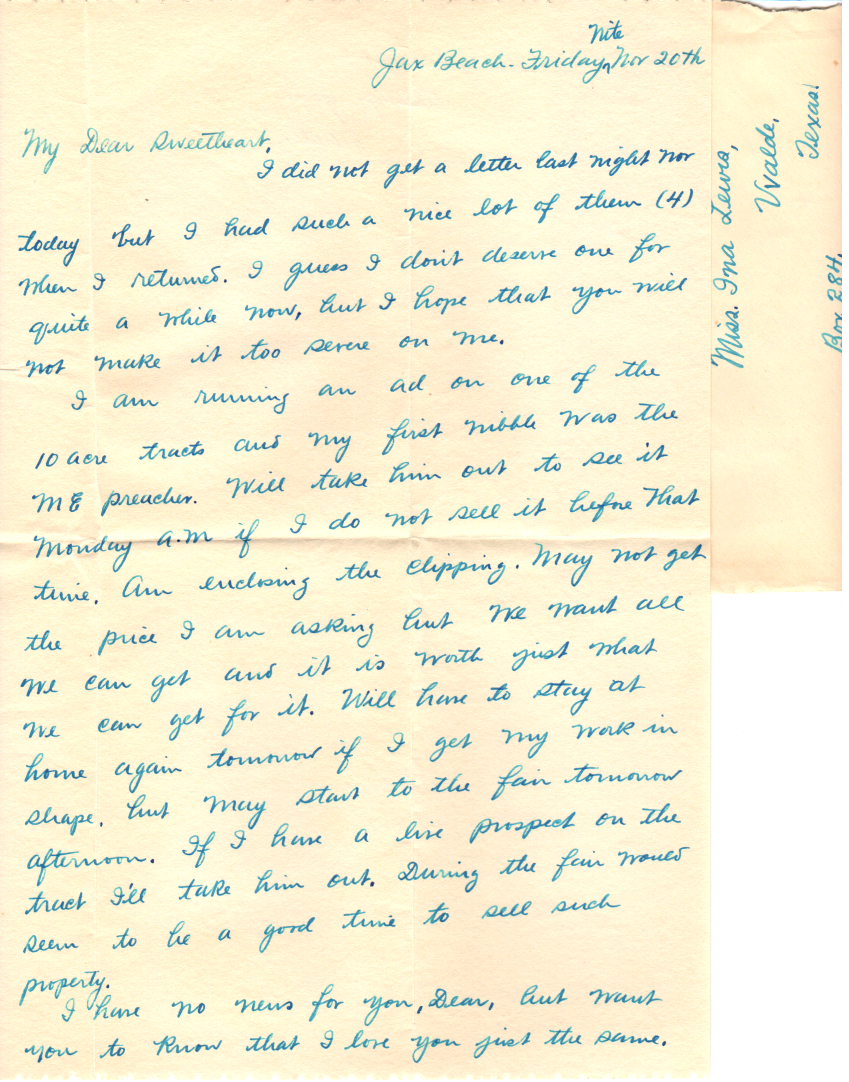 Jax Beach. Friday Nite, Nov 20th
My Dear Sweetheart,
I did not get a letter last night nor
today but I had such a nice lot of them (4)
when I returned. I guess I don't deserve one for
quite a while now, but I hope that you will
not make it too severe on me.
I am running an ad on one of the
10 acre tracts and my first nibble was the
ME preacher. Will take him out to see it
Monday a.m if I do not sell it before that
time. Am enclosing the clipping. May not get
the price I am asking but we want all
we can get and it is worth just what
we can get for it. Will have to stay at
home again tomorrow if I get my work in
shape, but may start to the fair tomorrow
afternoon. If I have a live prospect on the
tract I'll take him out. During the fair would
seem to be a good time to sell such
property.
I have no news for you, Dear, but want
you to know that I love you just the same.
Miss. Ina Lewis,
Uvalde,
Texas.
Box 284.